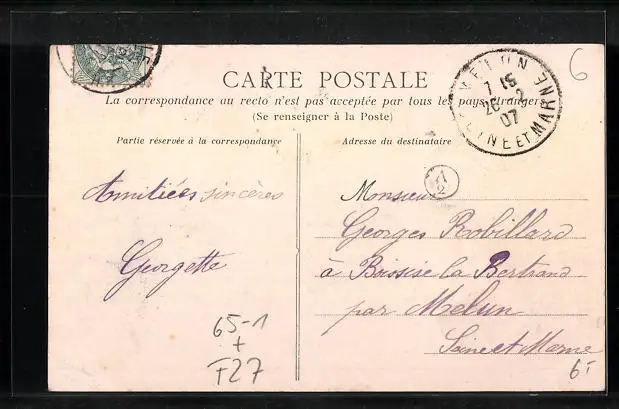 CARTE POSTALE
La correspondance au recto n'est pas acceptée par tous les pays étrangers
(Se renseigner à la Poste)
Partie réservée à la correspondance
Adresse du destinataire
MELUN
7 15
26-2
07
SEINE ET MARNE
6
Amitiées sincères
Georgette
Monsieur
Georges Robillard
à Boissise la Bertrand
par Melun
Seine et Marne
65-1
+
F27
6-